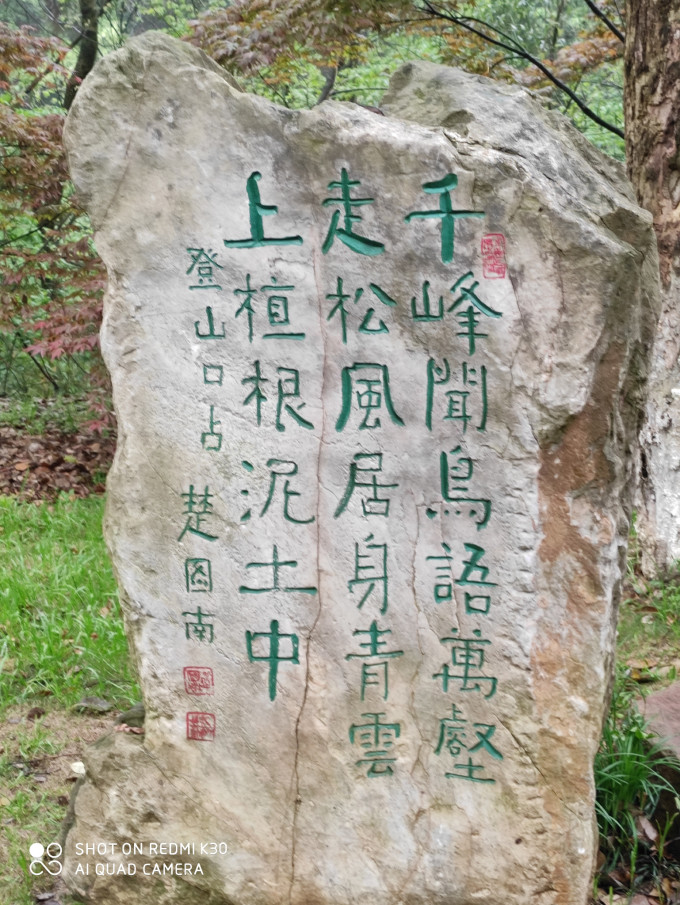 千峰聞鳥語萬壑
走松風居身青雲
上植根泥土中
登山口占 楚图南
SHOT ON REDMI K30
AI QUAD CAMERA